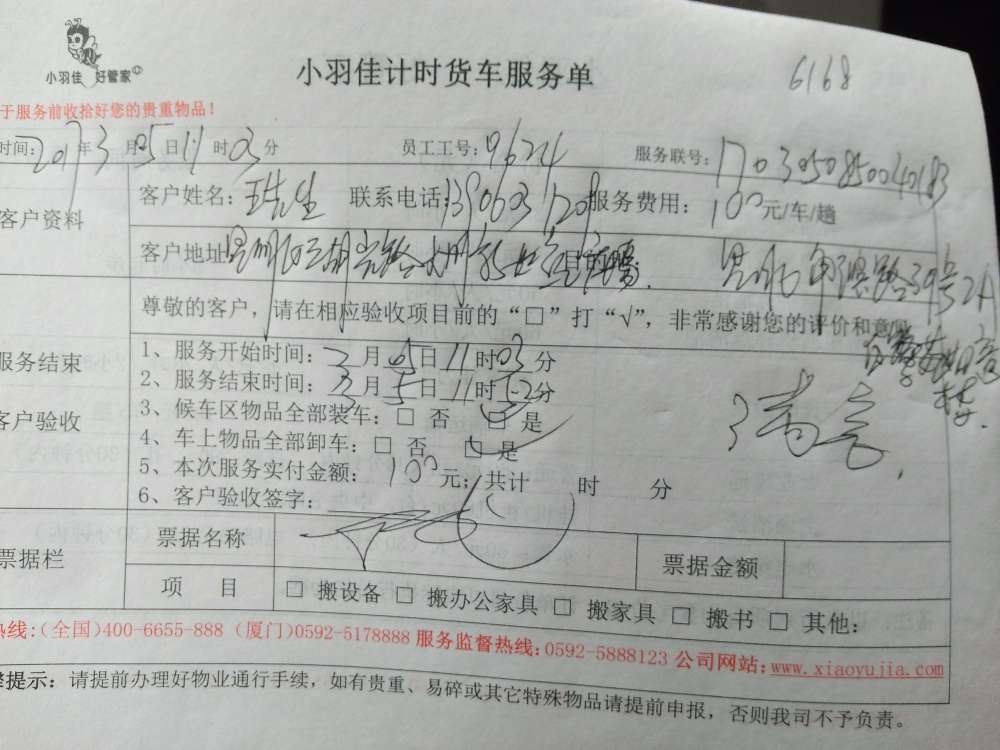 小羽佳 好管家
小羽佳计时货车服务单
6168
于服务前收拾好您的贵重物品!
时间: 2017年3月05日11时03分 员工工号: 9624 服务联号: 1703050850040183
客户资料
客户姓名: 王先生 联系电话: 服务费用: 100元/车/趟
客户地址
尊敬的客户，请在相应验收项目前的“□”打“√”，非常感谢您的评价和意见
服务结束
客户验收
1、服务开始时间: 3月05日11时03分
2、服务结束时间: 3月5日11时52分
3、候车区物品全部装车: □ 否 □ 是
4、车上物品全部卸车: □ 否 □ 是
5、本次服务实付金额: 100元; 共计 时 分
6、客户验收签字:
满意
票据栏
票据名称 票据金额
项 目 □ 搬设备 □ 搬办公家具 □ 搬家具 □ 搬书 □ 其他:
热线:(全国)400-6655-888 (厦门)0592-5178888 服务监督热线:0592-5888123 公司网站:www.xiaoyujia.com
提示: 请提前办理好物业通行手续，如有贵重、易碎或其它特殊物品请提前申报，否则我司不予负责。